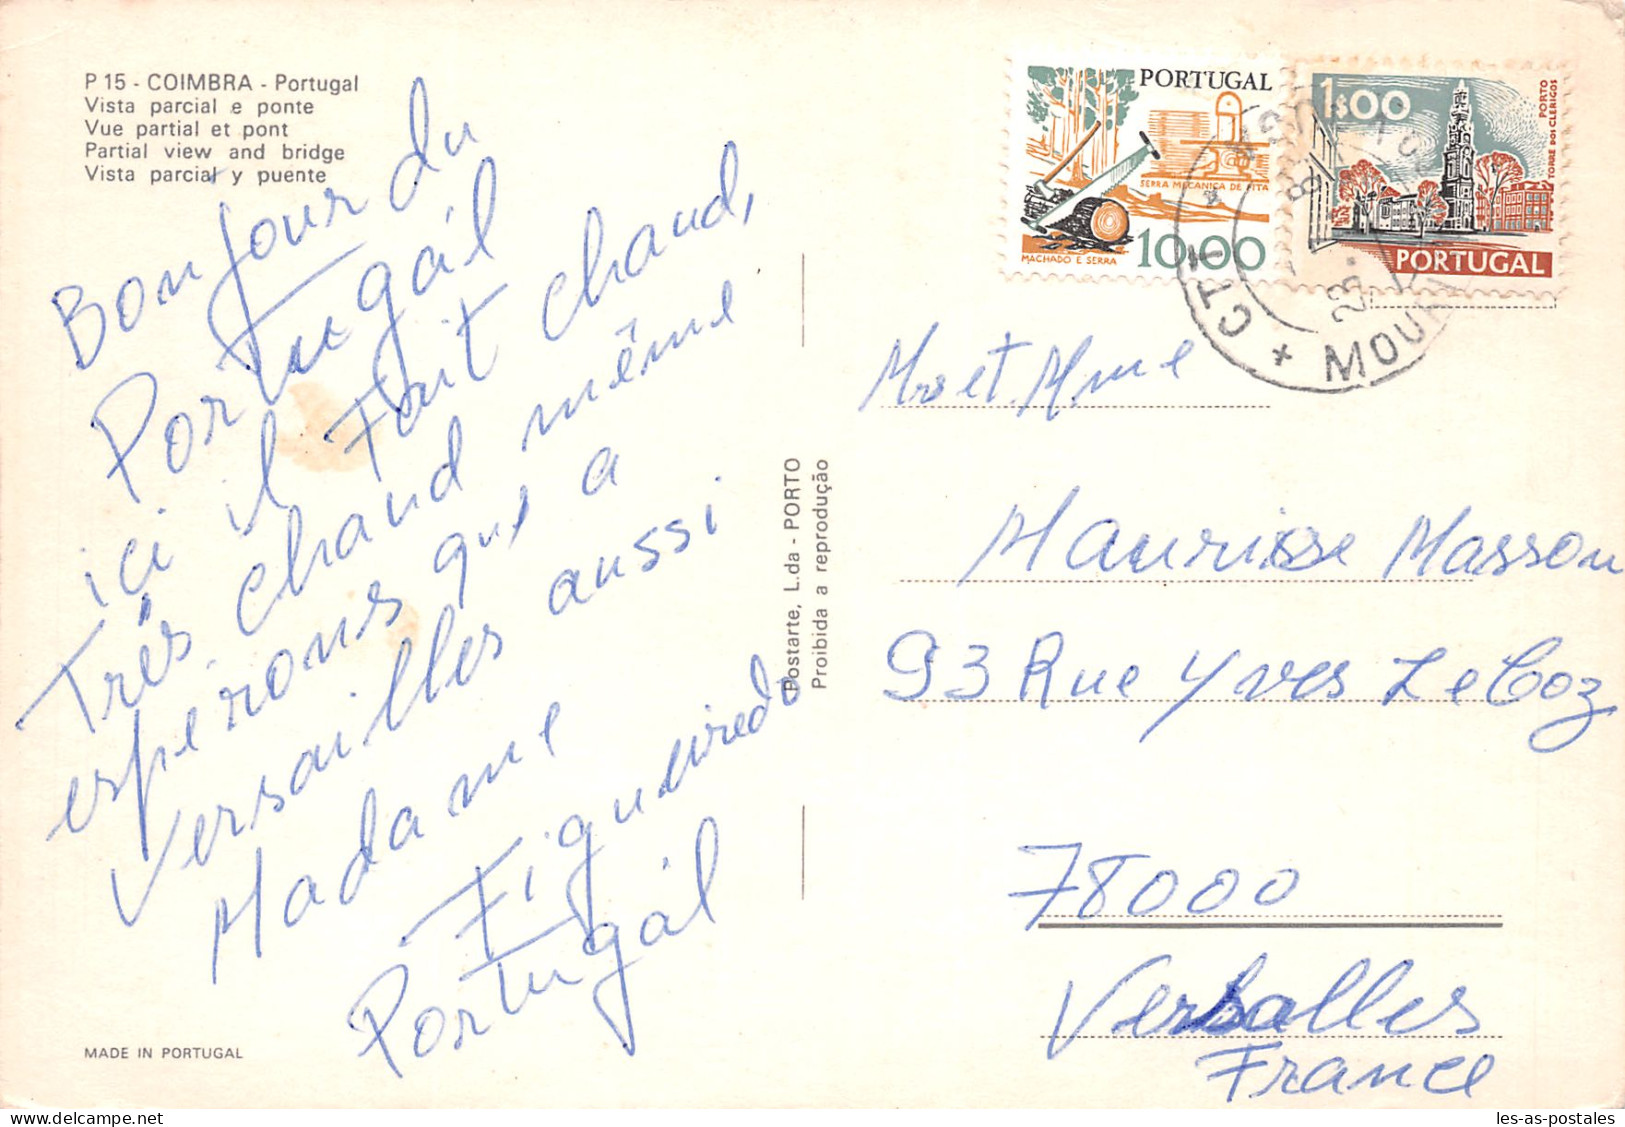 P 15 - COIMBRA - Portugal
Vista parcial e ponte
Vue partial et pont
Partial view and bridge
Vista parcial y puente
Bonjour du
Portugál
ici il Fait chaud,
Très chaud même
esperons que a
Versailles aussi
Madame
Figueiredo
Portugál
MADE IN PORTUGAL
Postarte, L.da - PORTO
Proibida a reprodução
PORTUGAL
SERRA MECANICA DE FITA
MACHADO E SERRA
10.00
1$00
PORTO
TORRE DOS CLERIGOS
PORTUGAL
CTT
23.
Mr et Mme
Maurisse Masson
93 Rue Yves Le Coz
78000
Versalles
France
les-as-postales